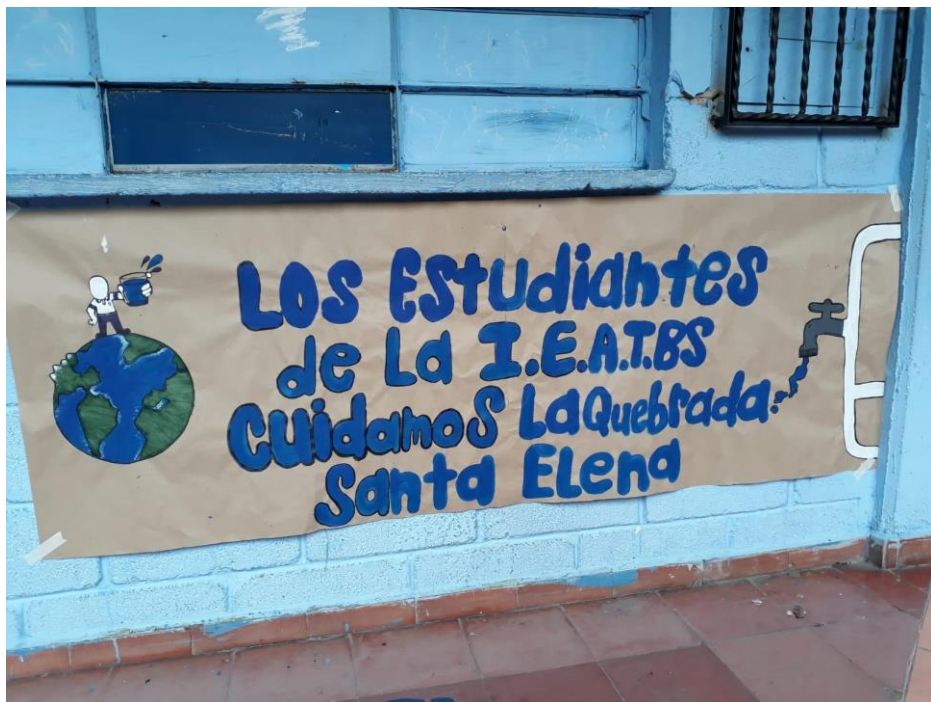 Los Estudiantes
de La I.E.A.T.BS
Cuidamos La Quebrada
Santa Elena